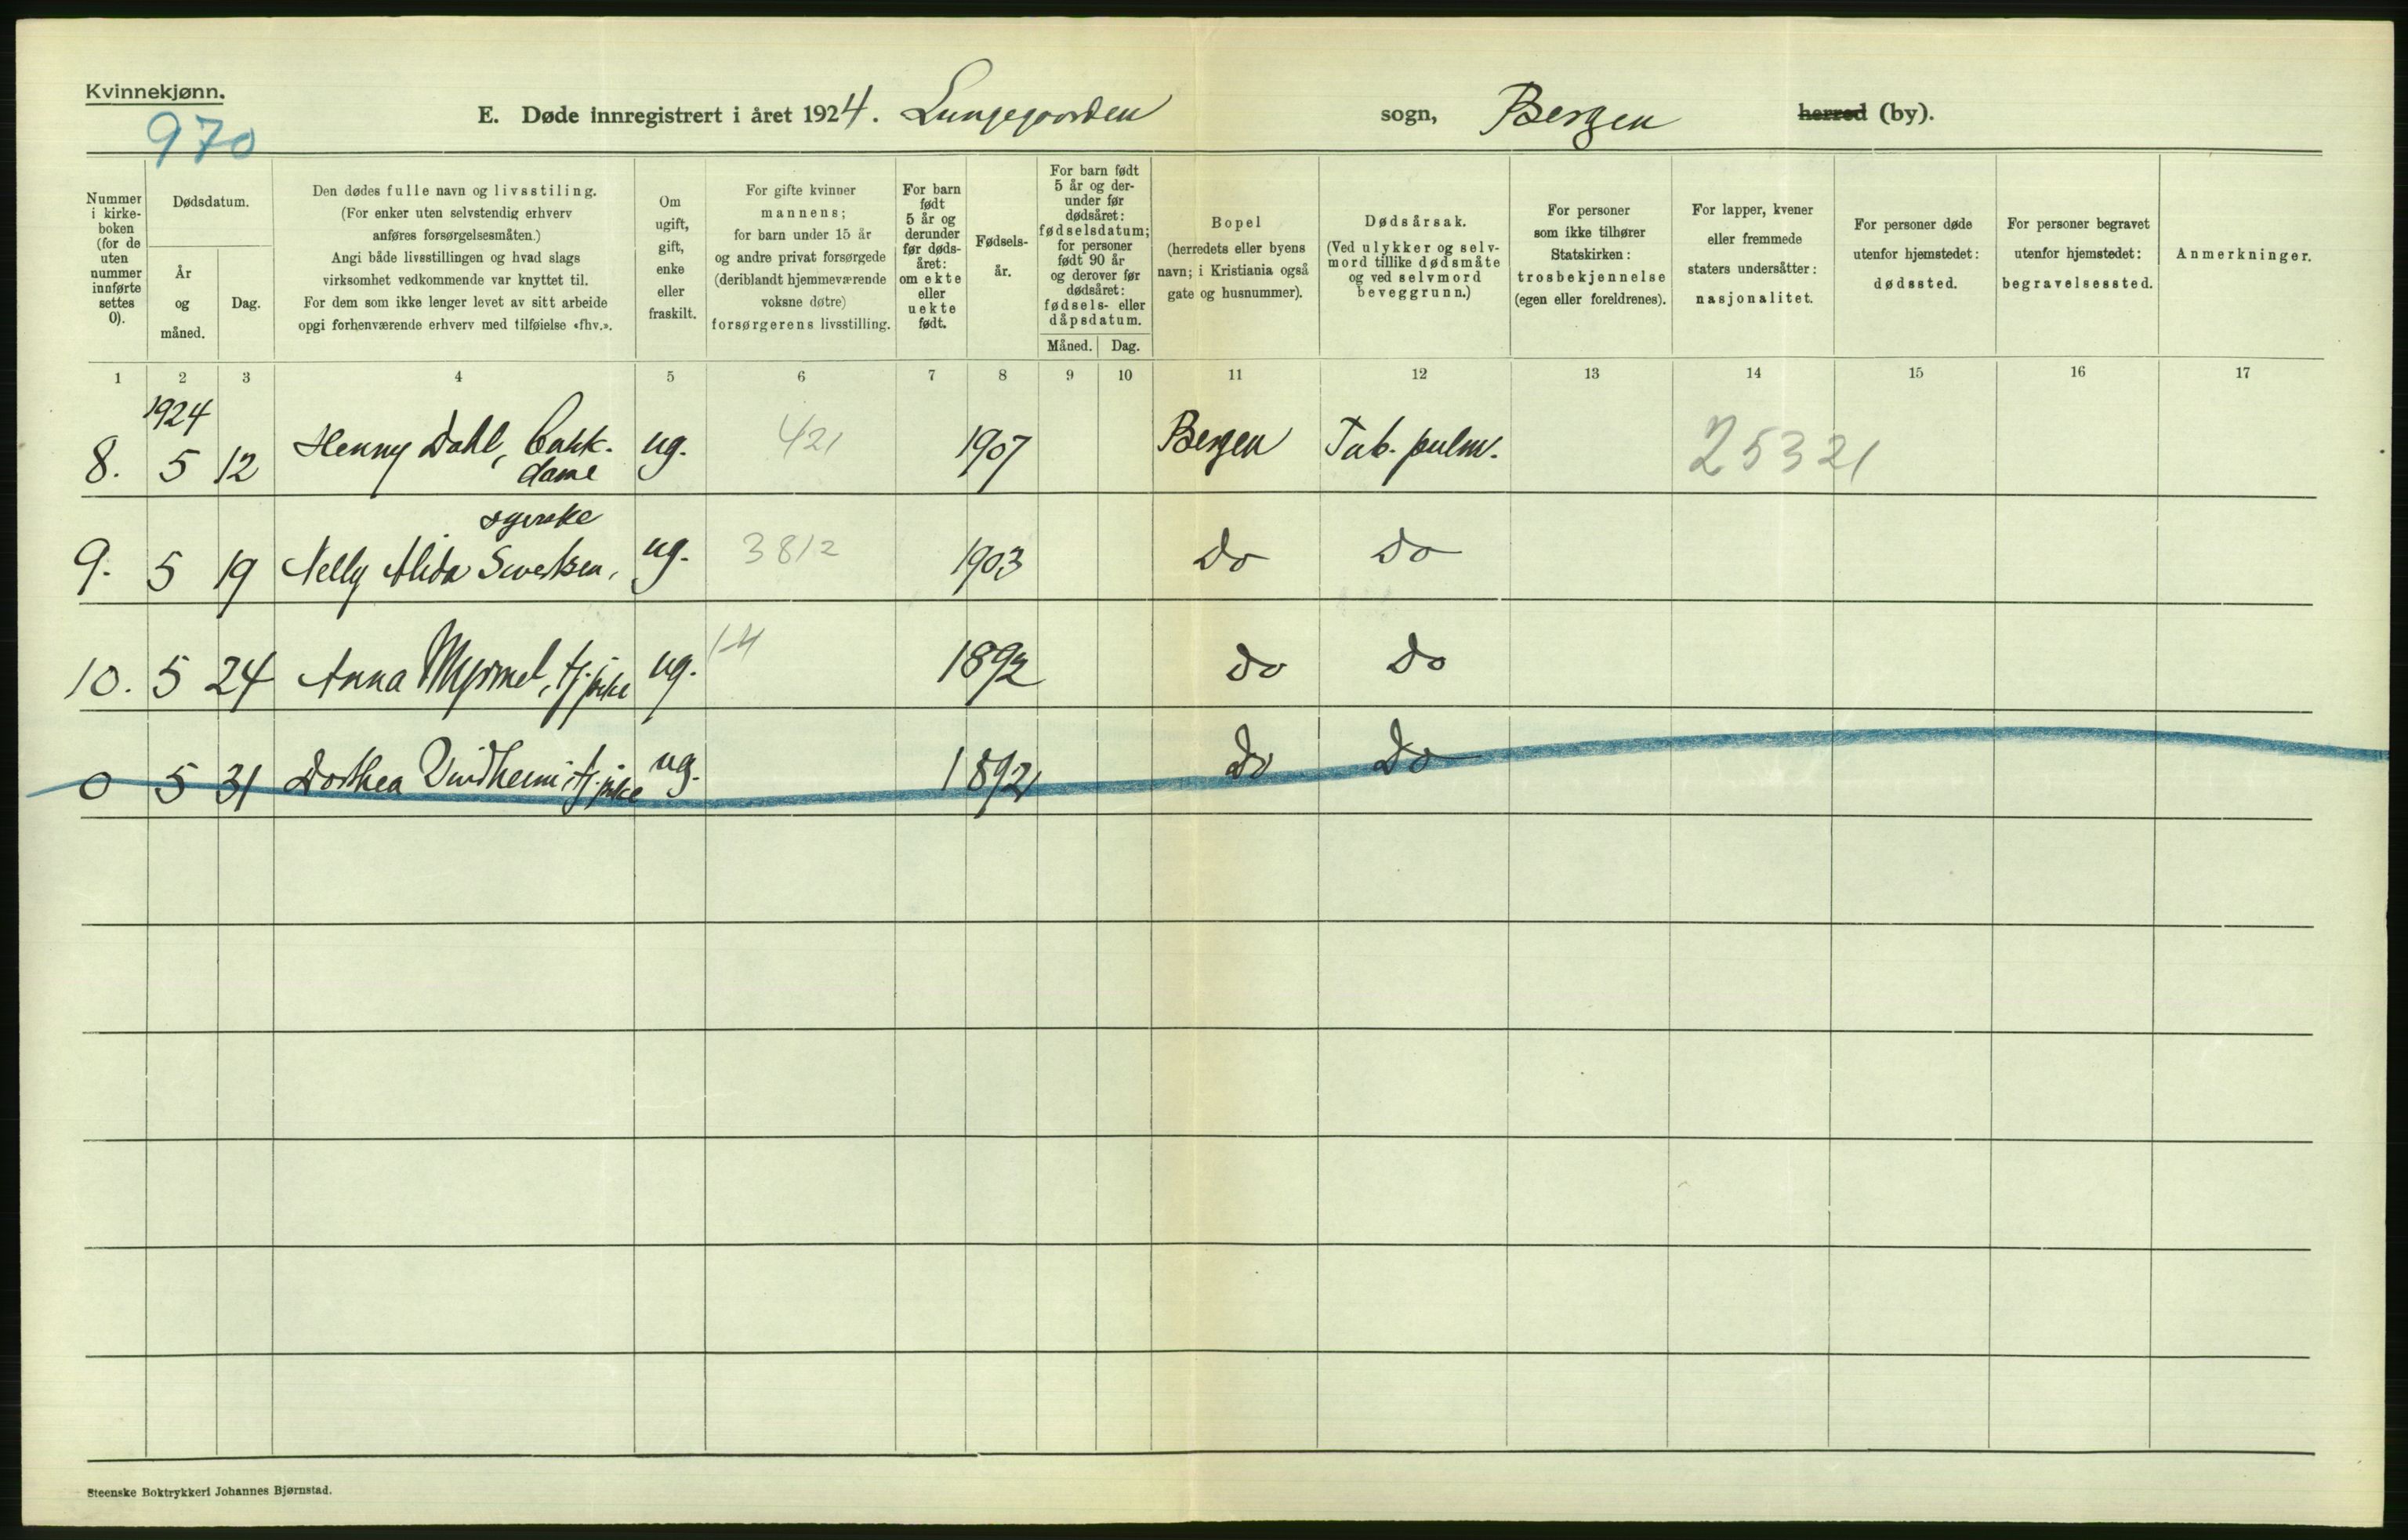 Kvinnekjønn.
970
E. Døde innregistrert i året 1924. Lungegaarden sogn, Bergen herred (by).
Nummer i kirke-boken (for de uten nummer innførte settes 0).
Dødsdatum.
År og måned.
Dag.
Den dødes fulle navn og livsstiling.
(For enker uten selvstendig erhverv
anføres forsørgelsesmåten.)
Angi både livsstillingen og hvad slags
virksomhet vedkommende var knyttet til.
For dem som ikke lenger levet av sitt arbeide
opgi forhenværende erhverv med tilføielse «fhv.».
Om
ugift,
gift,
enke
eller
fraskilt.
For gifte kvinner
mannens;
for barn under 15 år
og andre privat forsørgede
(deriblandt hjemmeværende
voksne døtre)
forsørgerens livsstilling.
For barn
født
5 år og
derunder
før døds-
året:
om ekte
eller
uekte
født.
Fødsels-
år.
For barn født
5 år og der-
under før
dødsåret:
fødselsdatum;
for personer
født 90 år
og derover før
dødsåret:
fødsels- eller
dåpsdatum.
Måned. Dag.
Bopel
(herredets eller byens
navn; i Kristiania også
gate og husnummer).
Dødsårsak.
(Ved ulykker og selv-
mord tillike dødsmåte
og ved selvmord
beveggrunn.)
For personer
som ikke tilhører
Statskirken:
trosbekjennelse
(egen eller foreldrenes).
For lapper, kvener
eller fremmede
staters undersåtter:
nasjonalitet.
For personer døde
utenfor hjemstedet:
dødssted.
For personer begravet
utenfor hjemstedet:
begravelsessted.
Anmerkninger.
1 2 3 4 5 6 7 8 9 10 11 12 13 14 15 16 17
1924
8. 5 12 Henny Dahl, ug. 421 1907 Bergen Tub. pulm. 25321
dame
syerske
9. 5 19 Nelly Alida Sivertsen, ug. 3812 1903 do do
10. 5 24 Anna Myrmel, tj.pike ug. 1892 do do
0 5 31 Dorthea Vindheim, tj.pike ug. 1892 Do Do
Steenske Boktrykkeri Johannes Bjørnstad.